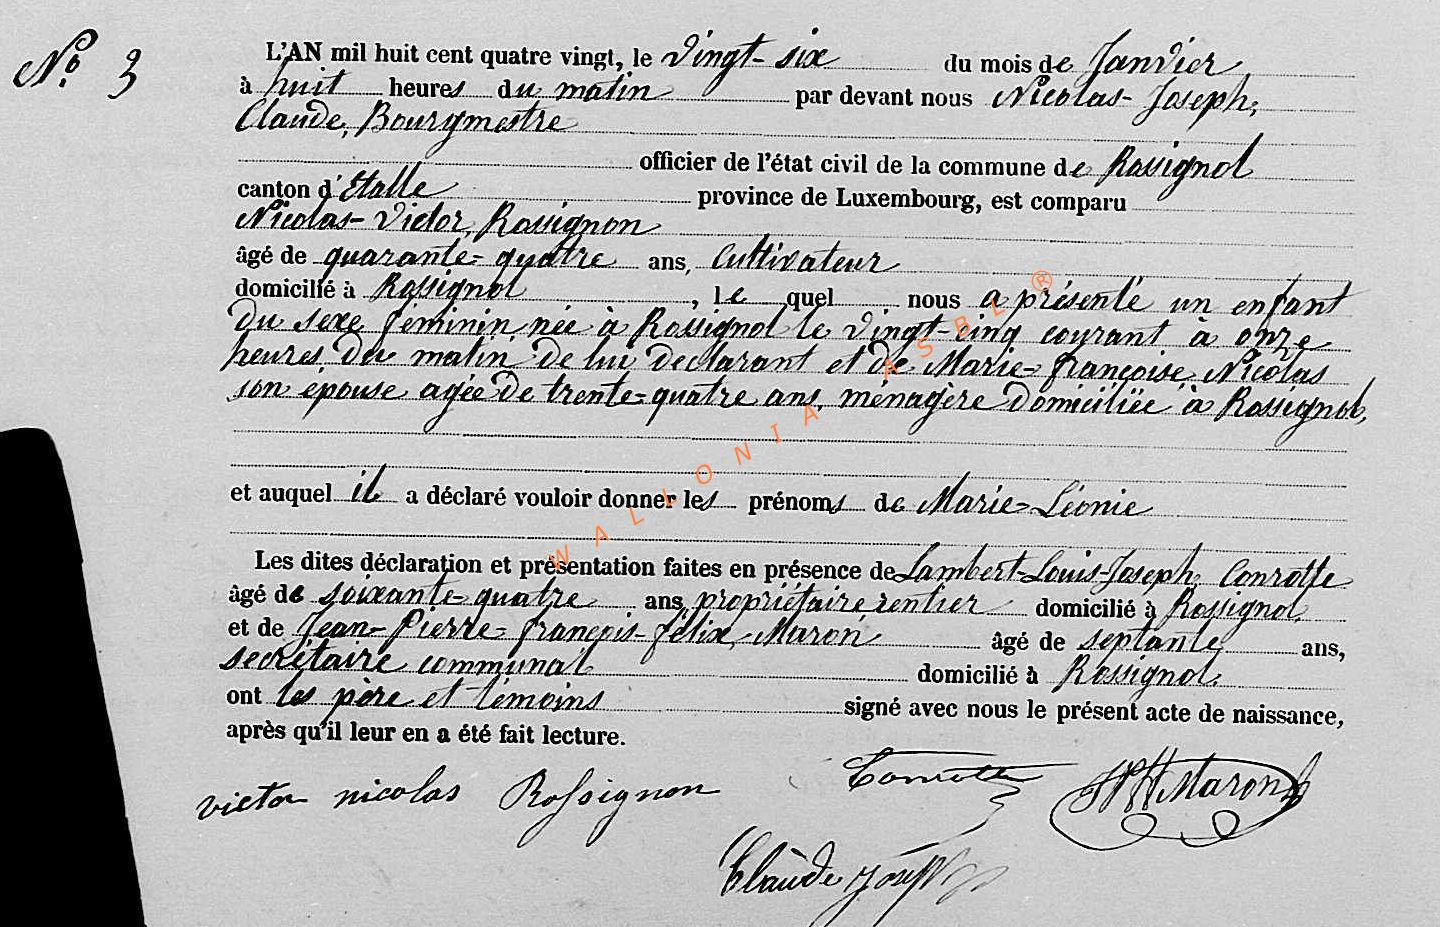 N° 3
L'AN mil huit cent quatre vingt, le vingt-six du mois de Janvier
à huit heures du matin par devant nous Nicolas-Joseph,
Claude, Bourgmestre
officier de l'état civil de la commune de Rossignol
canton d'Etalle province de Luxembourg, est comparu
Nicolas-Victor, Rossignon
âgé de quarante-quatre ans, cultivateur
domicilié à Rossignol, le quel nous a présenté un enfant
du sexe féminin née à Rossignol le vingt-cinq courant à onze
heures du matin de lui déclarant et de Marie-françoise Nicolas
son épouse agée de trente-quatre ans, ménagère domiciliée à Rossignol,
et auquel il a déclaré vouloir donner les prénoms de Marie-Léonie
Les dites déclaration et présentation faites en présence de Lambert-Louis-Joseph, Conrotte
âgé de soixante-quatre ans propriétaire rentier domicilié à Rossignol
et de Jean-Pierre-françois-félix, Maron âgé de septante ans,
secrétaire communal domicilié à Rossignol.
ont les père et témoins signé avec nous le présent acte de naissance,
après qu'il leur en a été fait lecture.
victor nicolas Rossignon Conrotte Maron
Claude Joseph
WALLONIA ASBL ®